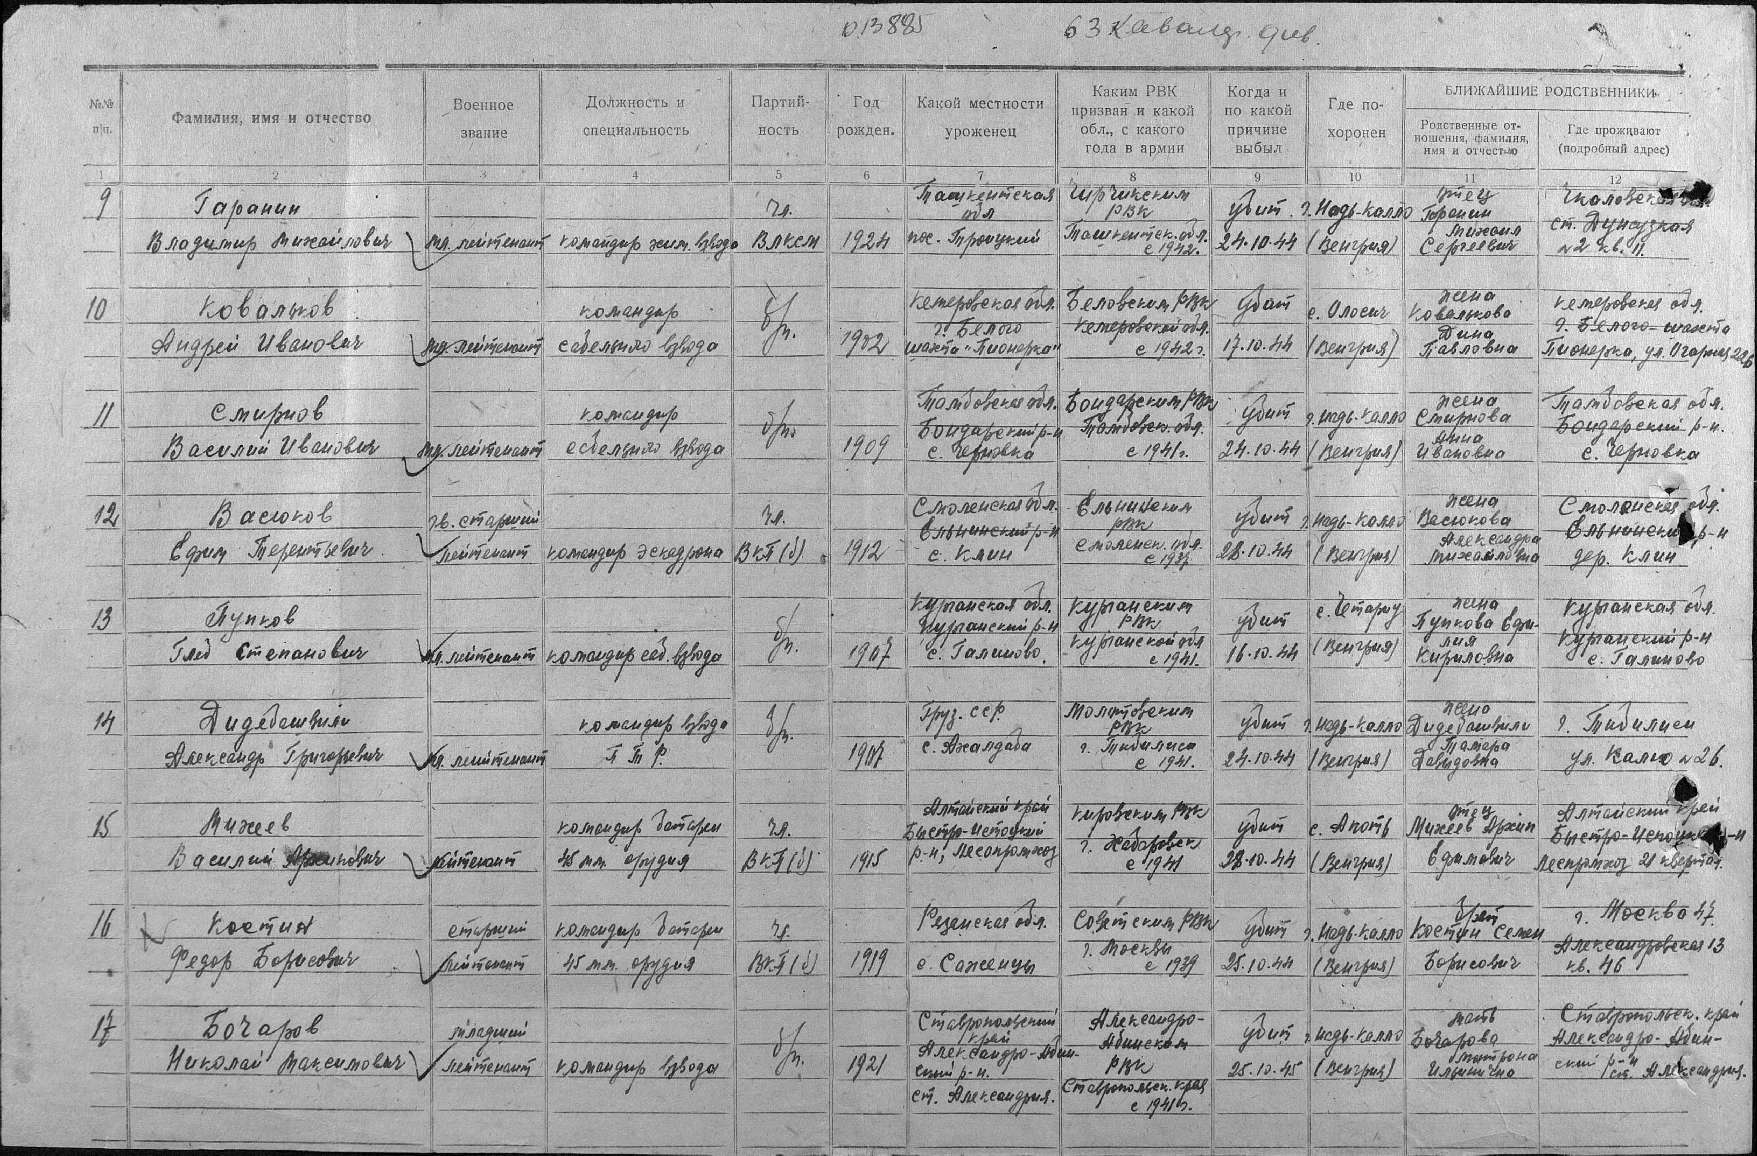 013885 63 Кавалер. див.
№№ п/п.
Фамилия, имя и отчество
Военное звание
Должность и специальность
Партий-ность
Год рожден.
Какой местности уроженец
Каким РВК призван и какой обл., с какого года в армии
Когда и по какой причине выбыл
Где по-хоронен
БЛИЖАЙШИЕ РОДСТВЕННИКИ
Родственные от-ношения, фамилия, имя и отчество
Где проживают (подробный адрес)
1 2 3 4 5 6 7 8 9 10 11 12
9 Гаранин
Владимир Михайлович мл. лейтенант командир хим. взвода чл. ВЛКСМ 1924
Ташкентская обл пос. Троицкий
Чирчикским РВК Ташкентск. обл. с 1942г.
убит 24.10.44
г. Надь-Калло (Венгрия)
отец Гаранин Михаил Сергеевич
Чкаловская
ст. Дунгузская
№2 кв. 11.
10 Ковальков
Андрей Иванович мл. лейтенант командир сабельного взвода б/п. 1902
Кемеровская обл. г. Белово шахта "Пионерка"
Беловским РВК Кемеровской обл. с 1942г.
убит 17.10.44
(Венгрия)
жена Ковалькова Дина Павловна
Кемеровская обл.
г. Белово-шахта
Пионерка, ул.
11 Смирнов
Василий Иванович мл. лейтенант командир сабельного взвода б/п. 1909
Тамбовская обл. Бондарский р-н с. Черновка
Бондарским РВК Тамбовск. обл. с 1941г.
убит 24.10.44
г. Надь-Калло (Венгрия)
жена Смирнова Анна Ивановна
Тамбовская обл.
Бондарский р-н.
с. Черновка
12 Васюков
Ефим Терентьевич гв. старший лейтенант командир эскадрона чл. ВКП(б) 1912
Смоленская обл. Ельнинский р-н с. Клин
Ельнинским РВК Смоленск. обл. с 1937
убит 28.10.44
г. Надь-Калло (Венгрия)
жена Васюкова Александра Михайловна
Смоленская обл.
Ельнинский р-н
дер. Клин
13 Пупков
Глеб Степанович мл. лейтенант командир саб. взвода б/п. 1907
Курганская обл. Курганский р-н с. Галишово.
Курганским РВК Курганской обл с 1941.
убит 16.10.44
(Венгрия)
жена Пупкова Еми-лия Кириловна
Курганская обл.
Курганский р-н
с. Галишово
14 Дидебашвили
Александр Григорьевич мл. лейтенант командир взвода ПТР. б/п. 1907
Груз. ССР. с. Ахалдаба
Молотовским РВК г. Тбилиси с 1941.
убит 24.10.44
г. Надь-Калло (Венгрия)
жена Дидебашвили Тамара Давидовна
г. Тбилиси
ул. №26.
15 Михеев
Василий лейтенант командир батареи 45 мм. орудия чл. ВКП(б) 1915
Алтайский край Быстро-Истокский р-н, Леспромхоз
Кировским РВК г. Хабаровск с 1941
убит 28.10.44
с. Апоть (Венгрия)
отец Михеев Архип Ефимович
Алтайский край
Быстро-Истокский р-н
Леспромхоз 21 квартал.
16 Костин
Федор Борисович старший лейтенант командир батареи 45 мм. орудия чл. ВКП(б) 1919
Рязанская обл. с. Саженцы
Советским РВК г. Москвы с 1939
убит 25.10.44
г. Надь-Калло (Венгрия)
брат Костин Семен Борисович
г. Москва 47
Александровская 13
кв. 46
17 Бочаров
Николай Максимович младший лейтенант командир взвода б/п. 1921
Ставропольский край Александро-Обин-ский р-н. ст. Александрия.
Александро-Обинским РВК Ставропольск. края с 1941г.
убит 25.10.45
г. Надь-Калло (Венгрия)
мать Бочарова Матрона Ильинична
Ставропольск. край
Александро-Обин-
ский р-н ст. Александрия.